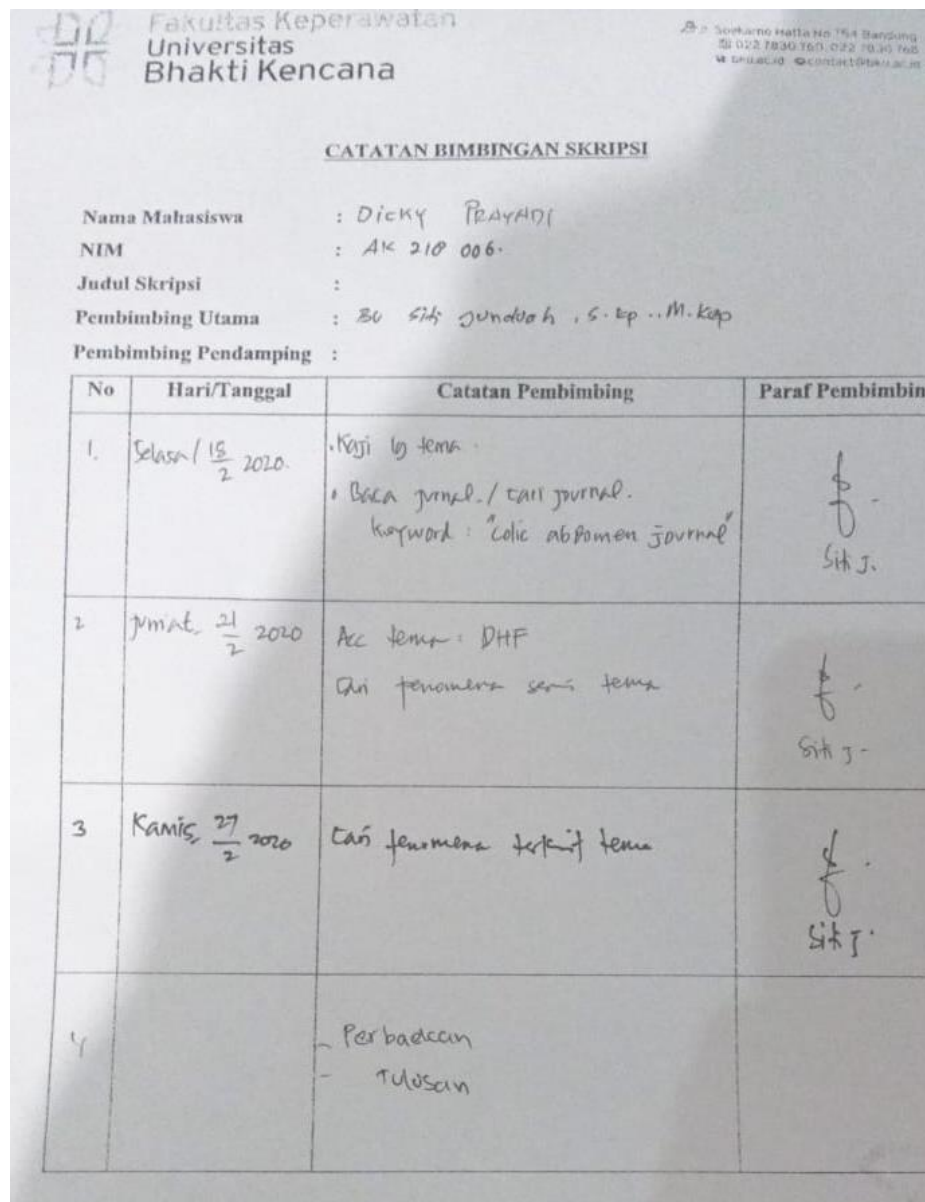 Fakultas Keperawatan
Universitas
Bhakti Kencana
Soekarno Hatta No 754 Bandung
022 7830 760, 022 7830 768
bku.ac.id contact@bku.ac.id
CATATAN BIMBINGAN SKRIPSI
Nama Mahasiswa : Dicky PRAYADI
NIM : AK 218 006.
Judul Skripsi :
Pembimbing Utama : BU Siti Jundiah, S.Kp., M.Kep
Pembimbing Pendamping :
No Hari/Tanggal Catatan Pembimbing Paraf Pembimbin
1. Selasa / 18/2 2020. • Kaji tema
• Baca jurnal / cari journal.
Keyword : "colic abdomen journal"
Siti J.
2 Jumat, 21/2 2020 Acc tema : DHF
Cari fenomena tema
Siti J -
3 Kamis, 27/2 2020 Cari fenomena terkait tema
Siti J.
4 - Perbadaan
- Tulusan